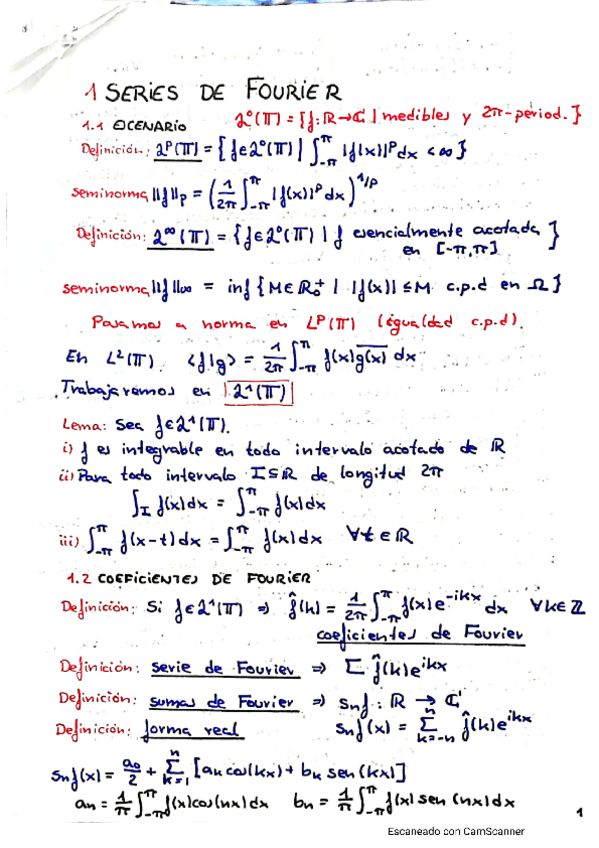 1 SERIES DE FOURIER
1.1 ESCENARIO ℒ⁰(𝕋) = {f: ℝ→ℂ | medibles y 2π-period.}
Definición: ℒᵖ(𝕋) = {f∈ℒ⁰(𝕋) | ∫_{-π}^{π} |f(x)|ᵖ dx < ∞}
seminorma ||f||ₚ = (1/2π ∫_{-π}^{π} |f(x)|ᵖ dx)^{1/p}
Definición: ℒ^∞(𝕋) = {f∈ℒ⁰(𝕋) | f esencialmente acotada en [-π,π]}
seminorma ||f||_∞ = inf {M∈ℝ₀⁺ | |f(x)| ≤ M c.p.d en Ω}
Pasamos a norma en Lᵖ(𝕋) (igualdad c.p.d).
En L²(𝕋). <f|g> = 1/2π ∫_{-π}^{π} f(x) \overline{g(x)} dx
Trabajaremos en ℒ¹(𝕋)
Lema: Sea f∈ℒ¹(𝕋).
i) f es integrable en todo intervalo acotado de ℝ
ii) Para todo intervalo I⊆ℝ de longitud 2π
∫_I f(x)dx = ∫_{-π}^{π} f(x)dx
iii) ∫_{-π}^{π} f(x-t)dx = ∫_{-π}^{π} f(x)dx ∀t∈ℝ
1.2 COEFICIENTES DE FOURIER
Definición: Si f∈ℒ¹(𝕋) ⇒ f̂(k) = 1/2π ∫_{-π}^{π} f(x)e^{-ikx} dx ∀k∈ℤ
coeficientes de Fourier
Definición: serie de Fourier ⇒ Σ f̂(k)e^{ikx}
Definición: sumas de Fourier ⇒ Sₙf: ℝ → ℂ
Definición: forma real Sₙf(x) = Σ_{k=-n}^{n} f̂(k)e^{ikx}
Sₙf(x) = a₀/2 + Σ_{k=1}^{n} [aₖ cos(kx) + bₖ sen(kx)]
aₙ = 1/π ∫_{-π}^{π} f(x)cos(nx)dx bₙ = 1/π ∫_{-π}^{π} f(x) sen(nx)dx
1
Escaneado con CamScanner